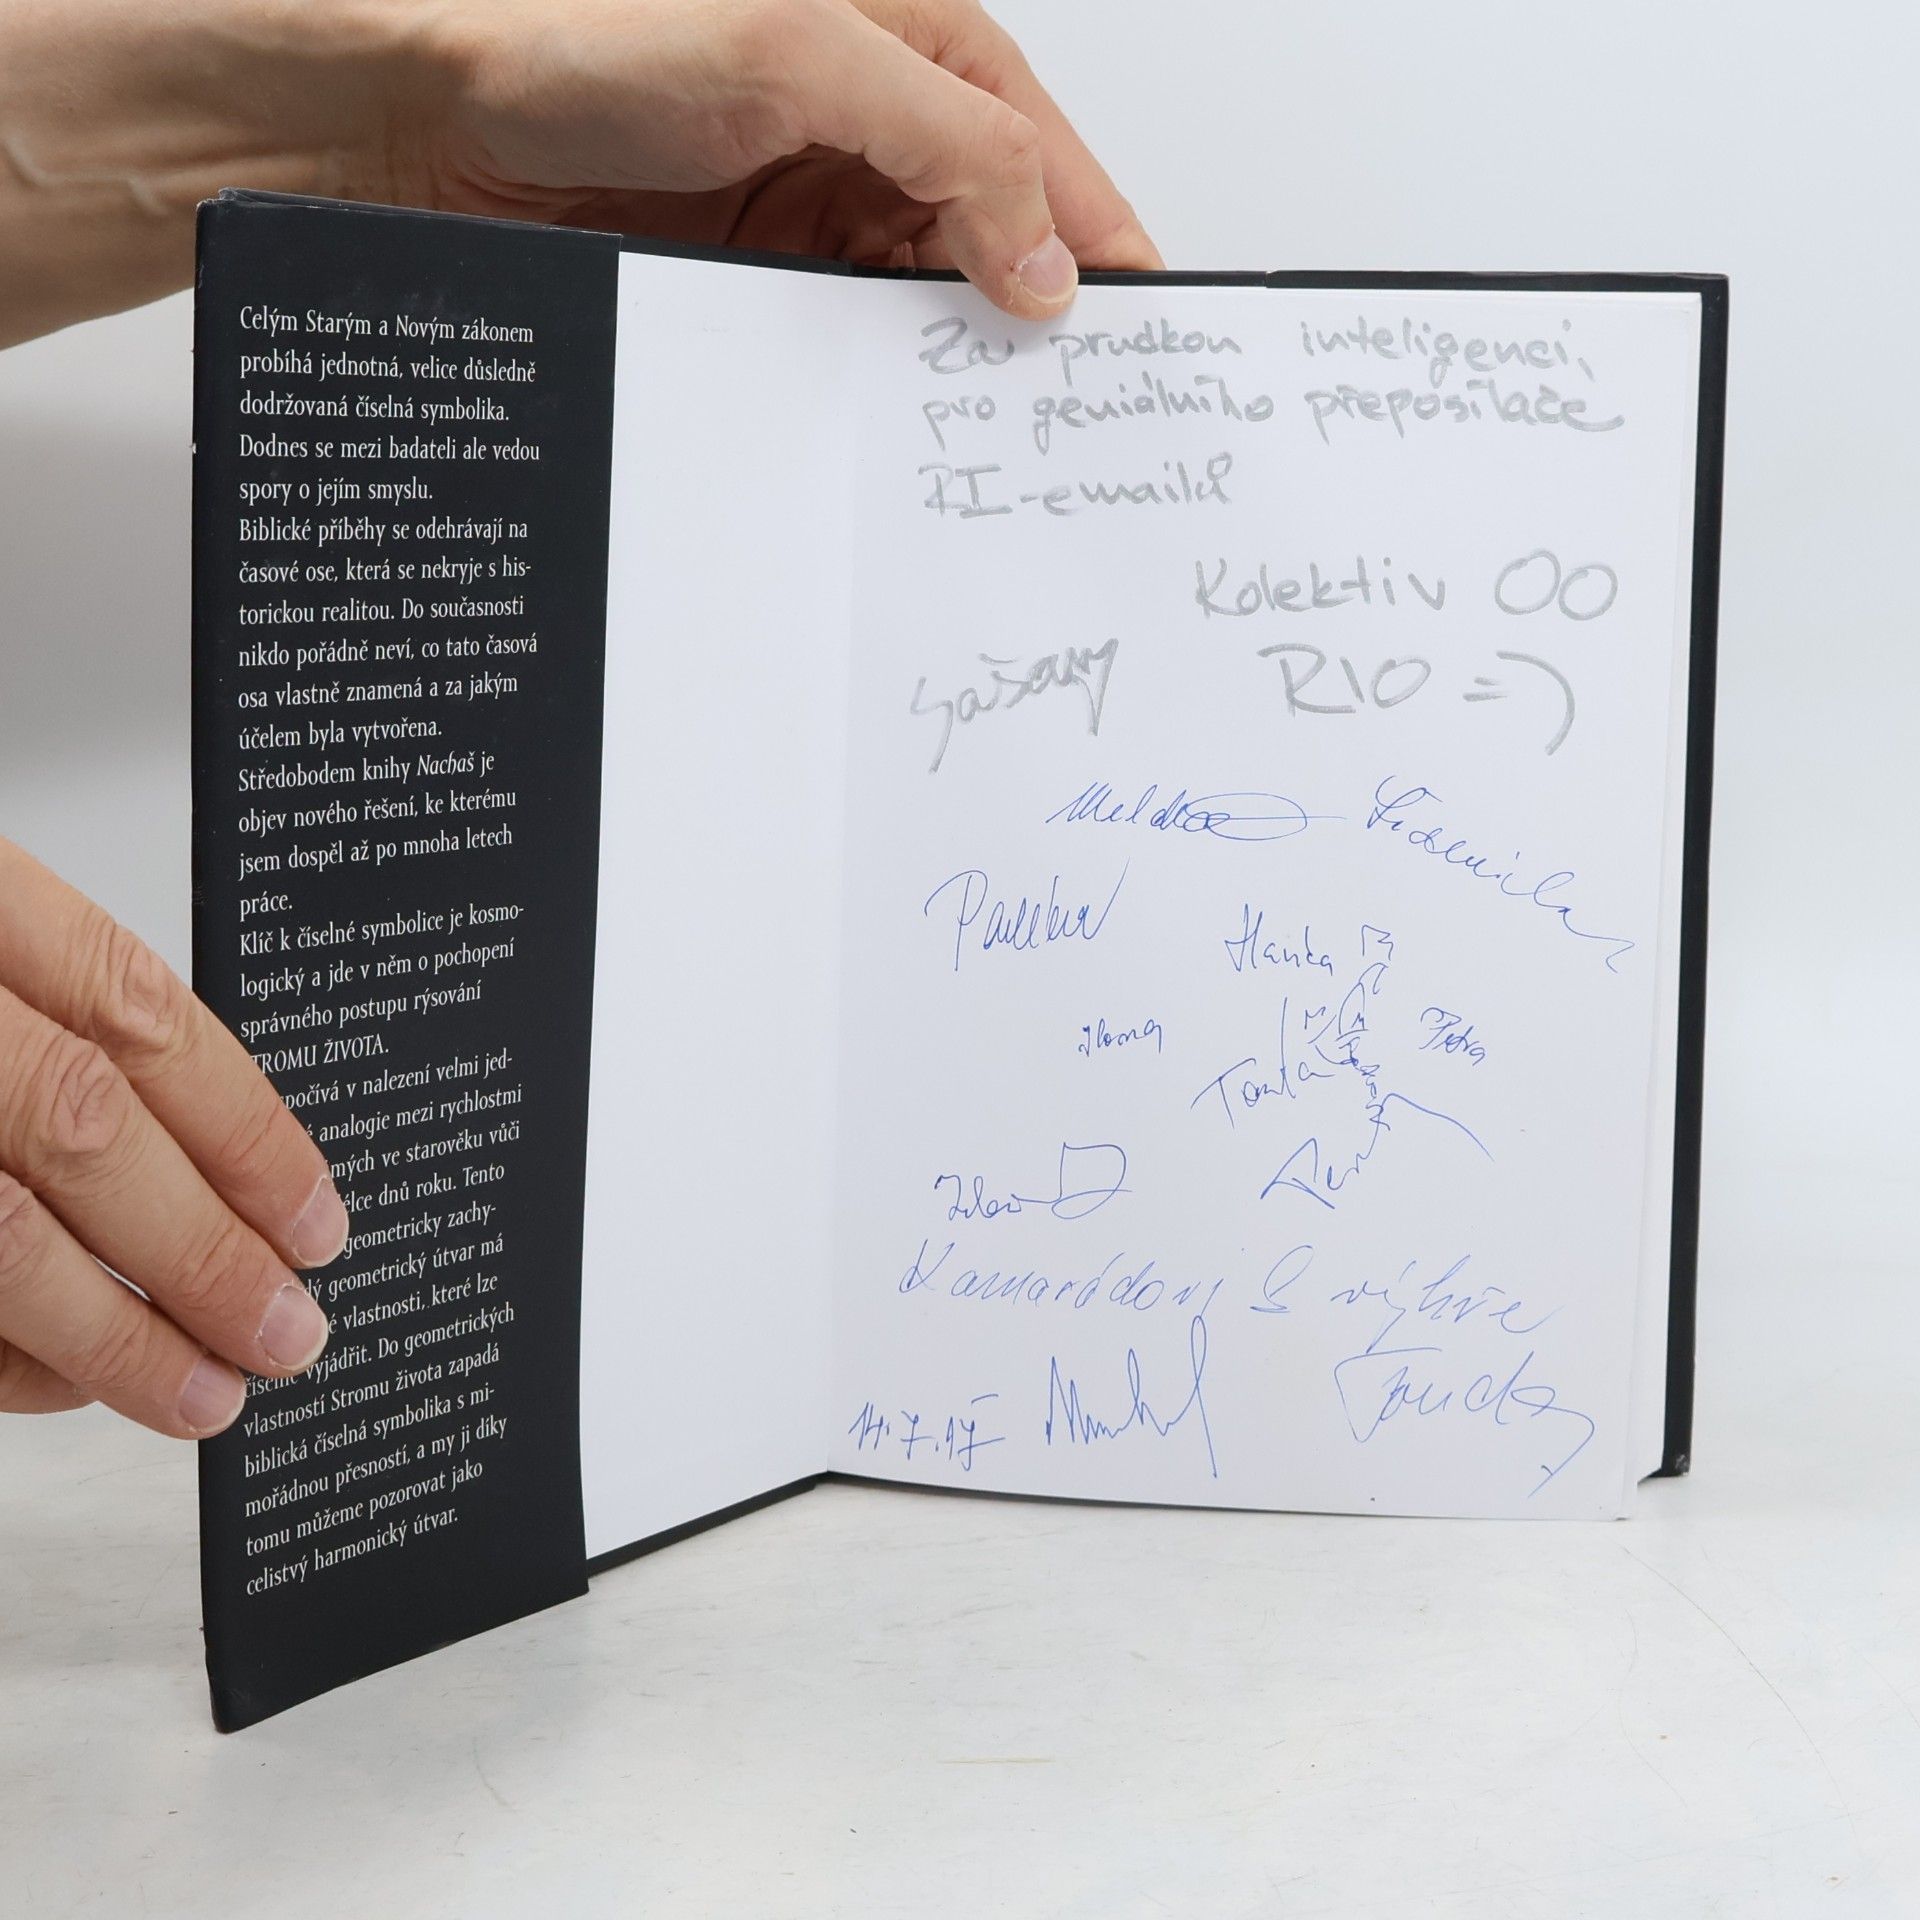 Celým Starým a Novým zákonem
probíhá jednotná, velice důsledně
dodržovaná číselná symbolika.
Dodnes se mezi badateli ale vedou
spory o jejím smyslu.
Biblické příběhy se odehrávají na
časové ose, která se nekryje s his-
torickou realitou. Do současnosti
nikdo pořádně neví, co tato časová
osa vlastně znamená a za jakým
účelem byla vytvořena.
Středobodem knihy Nachaš je
objev nového řešení, ke kterému
jsem dospěl až po mnoha letech
práce.
Klíč k číselné symbolice je kosmo-
logický a jde v něm o pochopení
správného postupu rýsování
TROMU ŽIVOTA.
počívá v nalezení velmi jed-
é analogie mezi rychlostmi
mých ve starověku vůči
élce dnů roku. Tento
geometricky zachy-
dý geometrický útvar má
é vlastnosti, které lze
číselně vyjádřit. Do geometrických
vlastností Stromu života zapadá
biblická číselná symbolika s mi-
mořádnou přesností, a my ji díky
tomu můžeme pozorovat jako
celistvý harmonický útvar.
Za prudkou inteligenci,
pro geniálního přeposílače
RI-emailů
Kolektiv OO
RIO =)
Hanka
Ilona
Petra
Kamarádovi S výhře
14.7.17